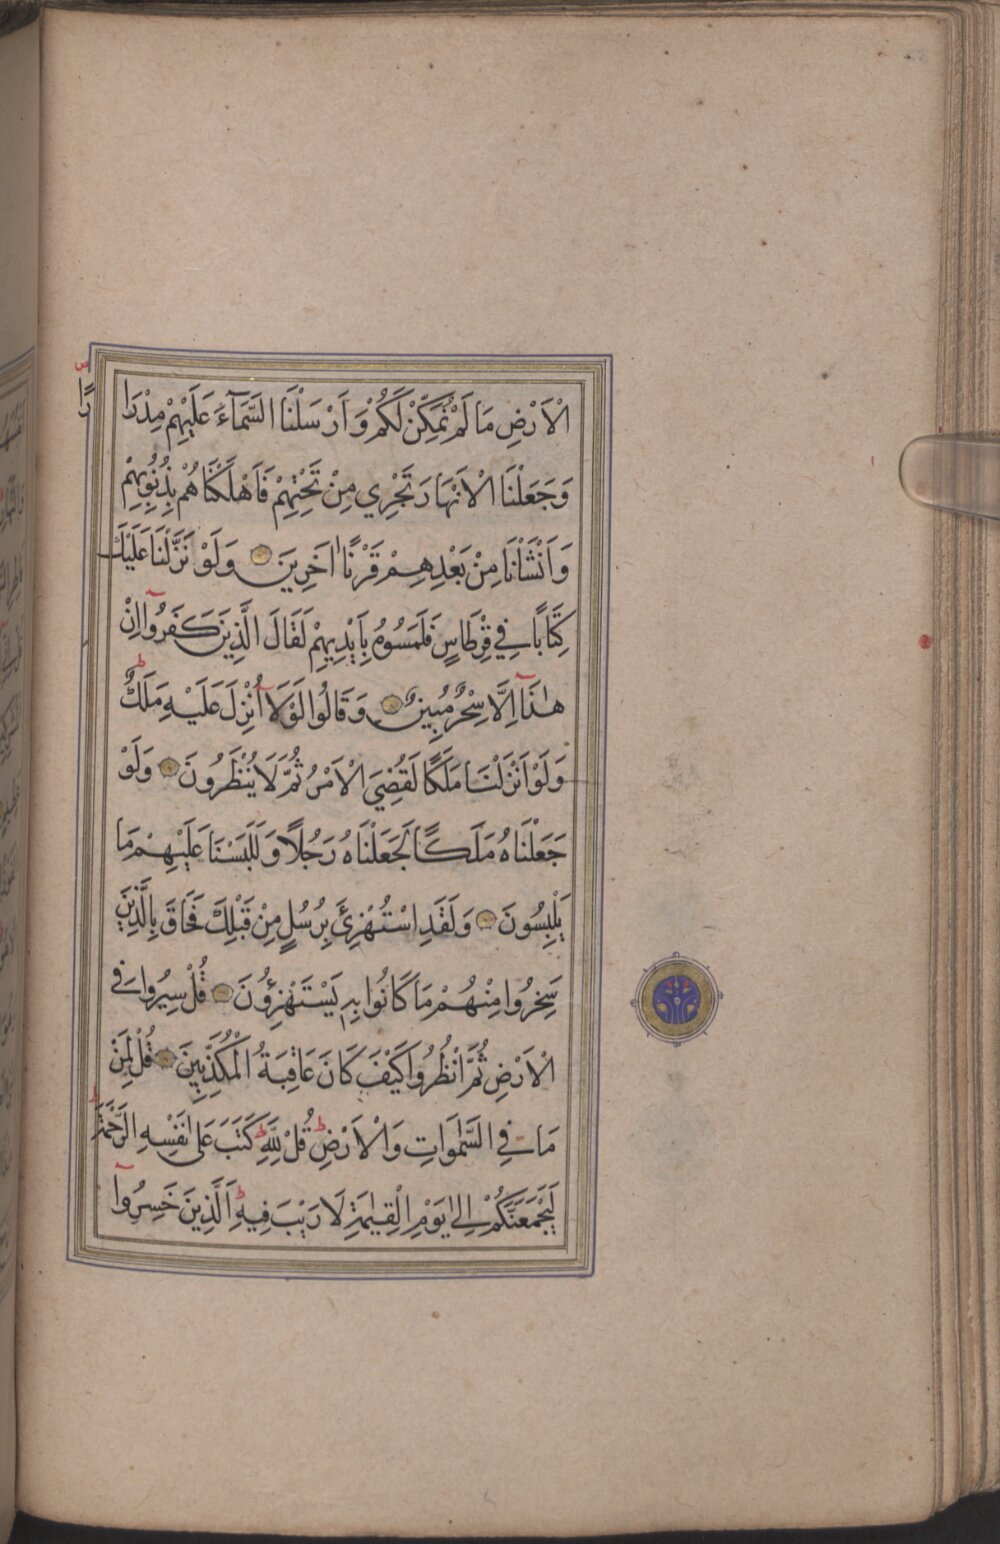 الْاَرْضِ مَا لَمْ نُمَكِّنْ لَكُمْ وَاَرْسَلْنَا السَّمَآءَ عَلَيْهِمْ مِدْرَارًا
وَجَعَلْنَا الْاَنْهَارَ تَجْرِي مِنْ تَحْتِهِمْ فَاَهْلَكْنَاهُمْ بِذُنُوبِهِمْ
وَاَنْشَأْنَا مِنْ بَعْدِهِمْ قَرْنًا اٰخَرِينَ وَلَوْ نَزَّلْنَا عَلَيْكَ
كِتَابًا فِي قِرْطَاسٍ فَلَمَسُوهُ بِاَيْدِيهِمْ لَقَالَ الَّذِينَ كَفَرُوٓا اِنْ
هٰذَآ اِلَّا سِحْرٌ مُبِينٌ وَقَالُوا لَوْلَآ اُنْزِلَ عَلَيْهِ مَلَكٌ ط
وَلَوْ اَنْزَلْنَا مَلَكًا لَقُضِيَ الْاَمْرُ ثُمَّ لَا يُنْظَرُونَ وَلَوْ
جَعَلْنَاهُ مَلَكًا لَجَعَلْنَاهُ رَجُلًا وَلَلَبَسْنَا عَلَيْهِمْ مَا
يَلْبِسُونَ وَلَقَدِ اسْتُهْزِئَ بِرُسُلٍ مِنْ قَبْلِكَ فَحَاقَ بِالَّذِينَ
سَخِرُوا مِنْهُمْ مَا كَانُوا بِهِ يَسْتَهْزِؤُنَ قُلْ سِيرُوا فِي
الْاَرْضِ ثُمَّ انْظُرُوا كَيْفَ كَانَ عَاقِبَةُ الْمُكَذِّبِينَ قُلْ لِمَنْ
مَا فِي السَّمٰوَاتِ وَالْاَرْضِ ط قُلْ لِلّٰهِ ط كَتَبَ عَلٰى نَفْسِهِ الرَّحْمَةَ ط
لَيَجْمَعَنَّكُمْ اِلٰى يَوْمِ الْقِيٰمَةِ لَا رَيْبَ فِيهِ ط اَلَّذِينَ خَسِرُوٓا